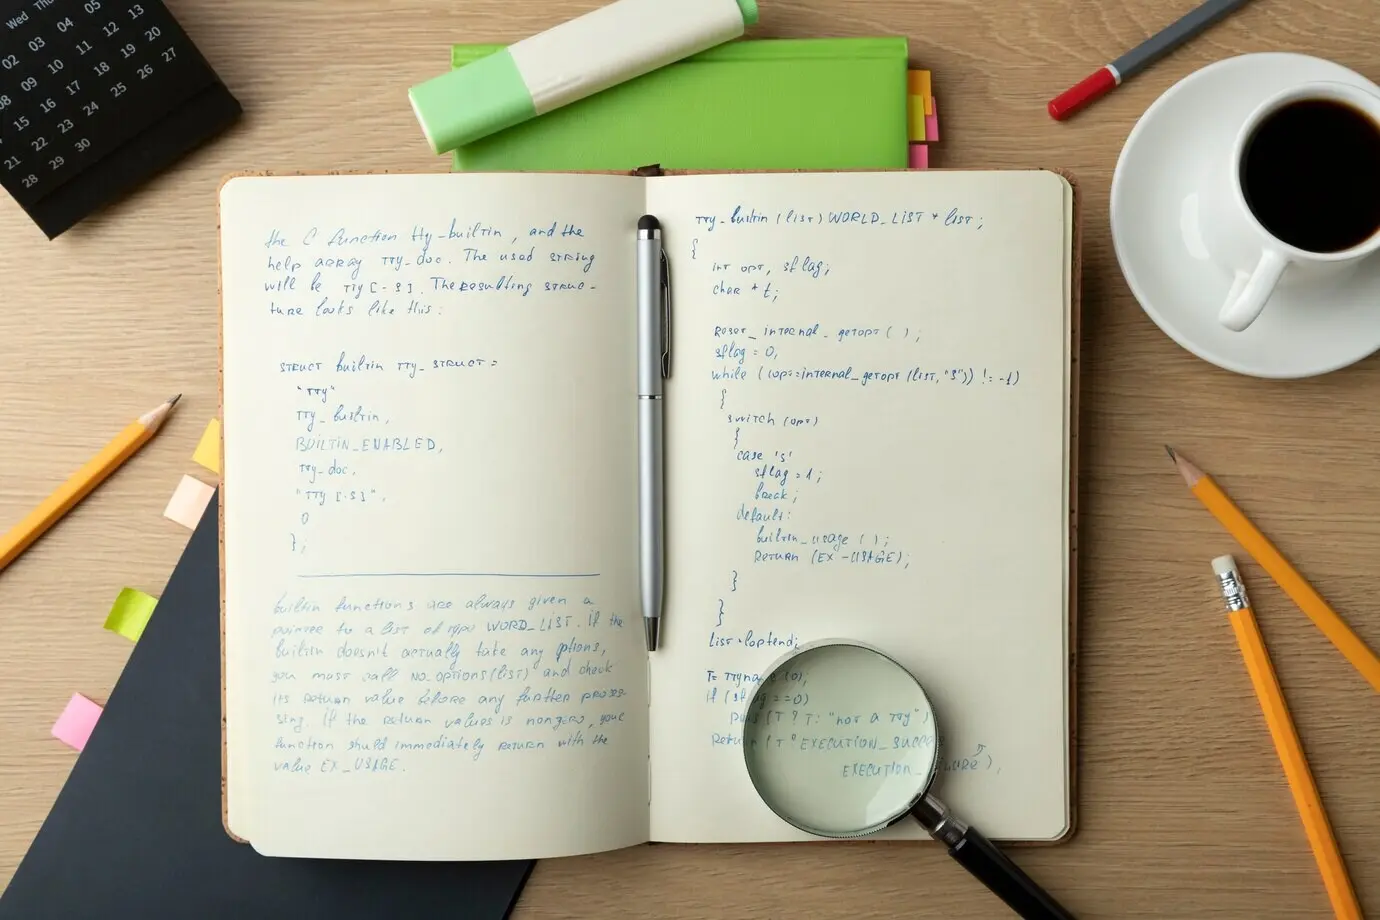 Wed Thu
02 03 04 05
08 09 10 11 12 13
15 16 17 18 19 20
21 22 23 24 25 26 27
28 29 30
the C function tty-builtin, and the
help array TTY_doc. The used string
will be TTY [-S]. The resulting struc-
ture looks like this:
STRUCT builtin TTY_STRUCT =
"TTY"
TTY_builtin,
BUILTIN_ENABLED,
TTY_doc,
"TTY [-S]",
0
};
builtin functions are always given a
pointer to a list of type WORD_LIST. If the
builtin doesn't actually take any options,
you must call no_options(list) and check
its return value before any further proces-
sing. If the return values is nonzero, your
function should immediately return with the
value EX_USAGE.
TTY_builtin (list) WORLD_LIST * list;
{
int opt, sflag;
char * t;
Reset_internal_getopt ( );
sflag = 0,
while ((opt=internal_getopt (list, "S")) != -1)
{
switch (opt)
{
case 's'
sflag = 1;
break;
default:
builtin_usage ( );
Return (EX-USAGE);
}
}
List = loptend;
T= TTyna (0);
if (sf ==0)
(T ? T: "not a TTy")
Return (T EXECUTION_
EXECUTION_